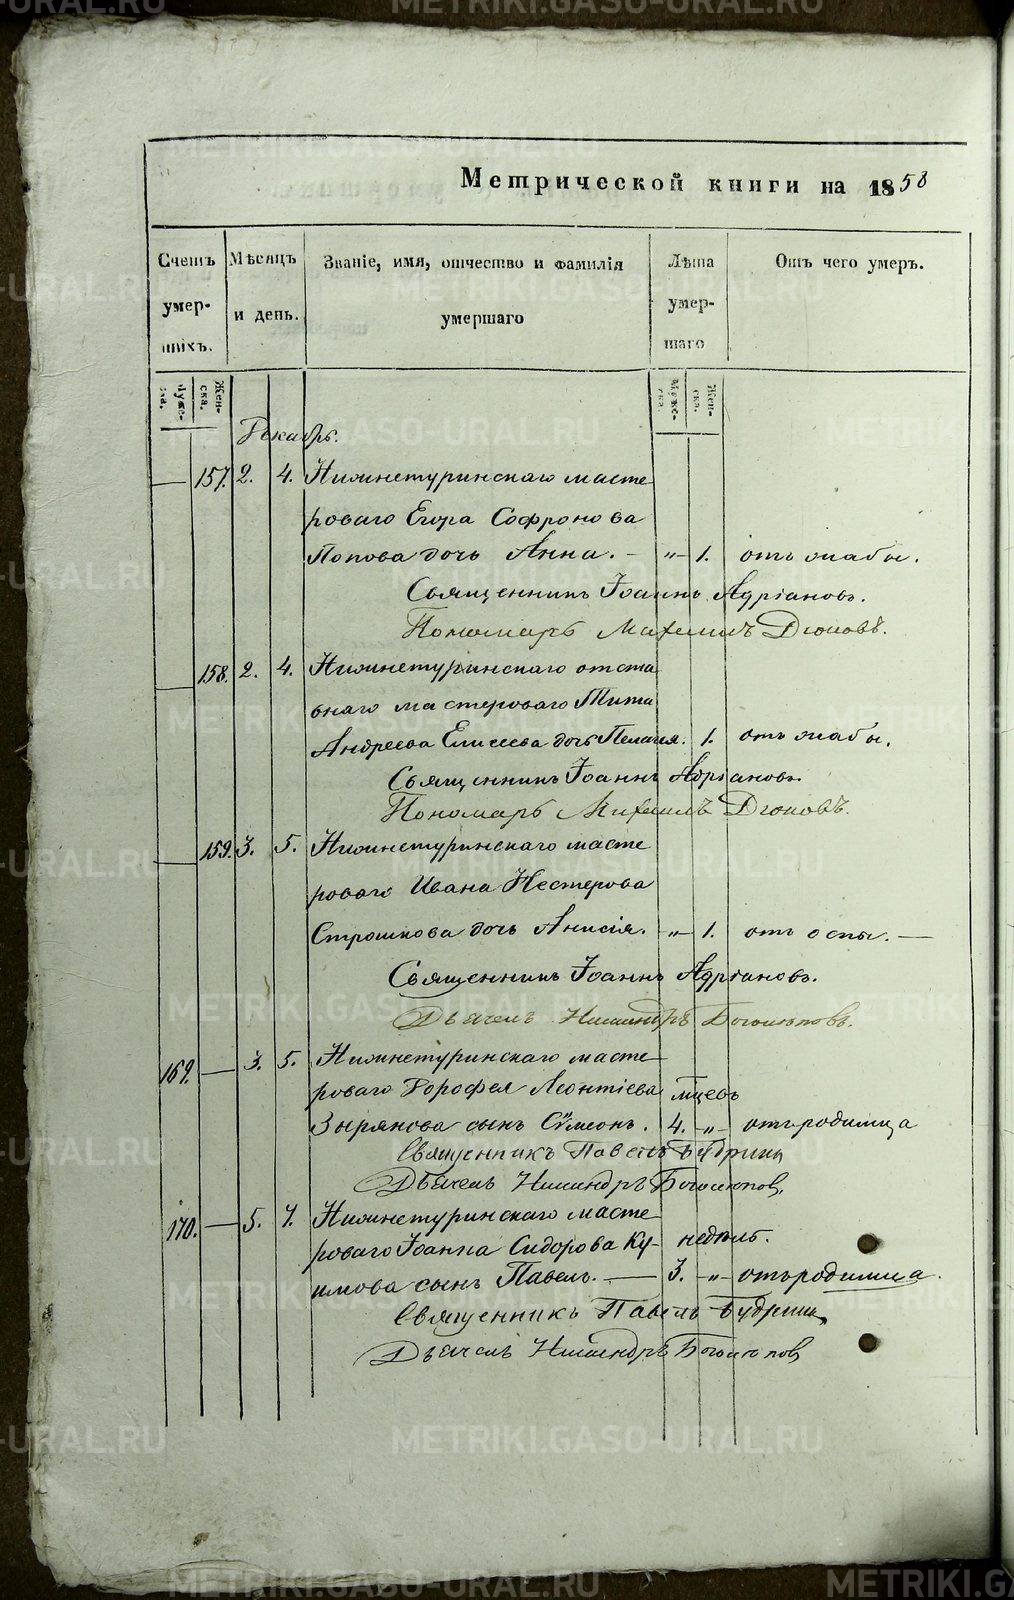 Метрической книги на 1858
Счетъ умершихъ.
Мѣсяцъ и день.
Званіе, имя, отчество и фамилія умершаго
Лѣта умершаго
Отъ чего умеръ.
Мужеска.
Женска.
Мужеска.
Женска.
Декабрь.
— 157. 2. 4. Нижнетуринскаго масте-
роваго Егора Софронова
Попова дочь Анна. — „— 1. отъ жабы.
Священникъ Іоаннъ Адріановъ.
Пономарь Михаилъ
— 158. 2. 4. Нижнетуринскаго отста
внаго мастероваго Тита
Андреева Елисеева дочь Пелагія. 1. отъ жабы.
Священникъ Іоаннъ Адріановъ.
Пономарь Михаилъ
— 159. 3. 5. Нижнетуринскаго масте
роваго Ивана Нестерова
Строшкова дочь Анисія. „— 1. отъ оспы. —
Священникъ Іоаннъ Адріановъ.
Дьячекъ Никандръ Боголюповъ.
169. — 3. 5. Нижнетуринскаго масте-
роваго Дорофея Леонтіева мѣцевъ
Зырянова сынъ Сѵмеонъ. 4. „— отъ родимца
Священникъ Павелъ Будринъ
Дьячекъ Никандръ Боголюповъ,
170. — 5. 7. Нижнетуринскаго масте-
роваго Іоанна Сидорова Ку- недѣль.
имова сынъ Павелъ. — 3. „— отъ родимца.
Священникъ Павелъ Будринъ,
Дьячекъ Никандръ Боголюповъ
METRIKI.GASO-URAL.RU